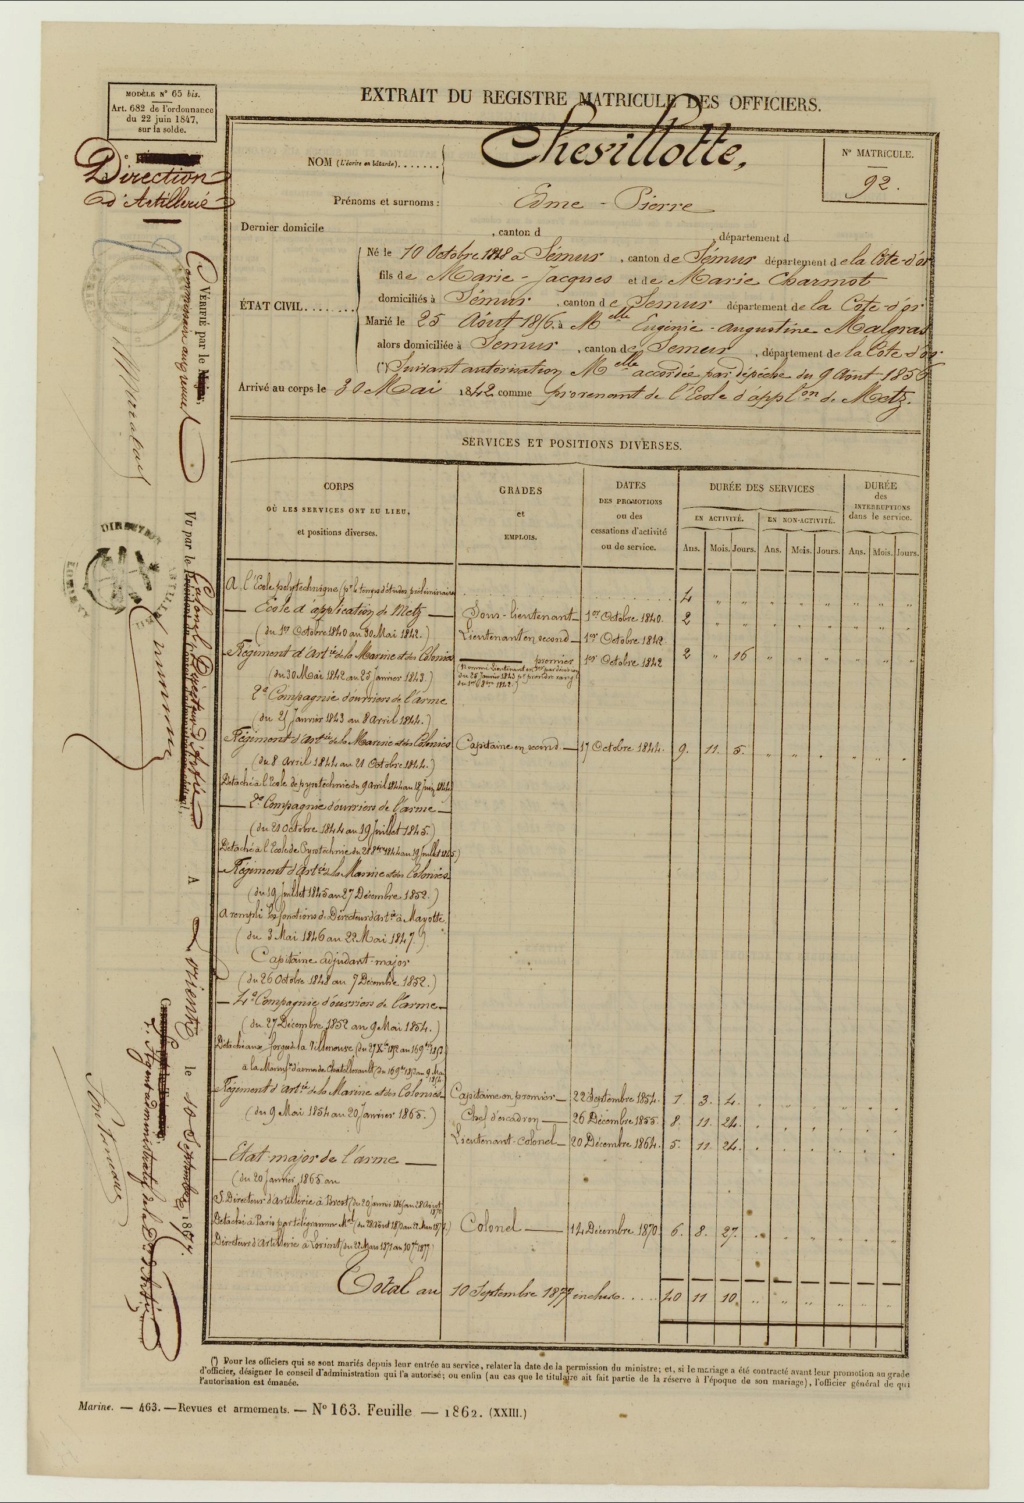 MODÈLE N° 65 bis.
Art. 682 de l'ordonnance
du 22 juin 1847,
sur la solde.
EXTRAIT DU REGISTRE MATRICULE DES OFFICIERS.
Direction
d'Artillerie
NOM (L'écrire en bâtarde)....... Chevillotte,
N° MATRICULE.
92.
Prénoms et surnoms : Edme - Pierre
Dernier domicile , canton d , département d
ÉTAT CIVIL.......
Né le 10 Octobre 1818 à Sémur , canton de Sémur département de la Côte-d'or
fils de Marie-Jacques et de Marie Charmot
domiciliés à Sémur , canton de Semur département de la Côte-d'or
Marié le 25 Août 1856 à Melle Eugénie-Augustine Malgras
alors domiciliée à Semur , canton de Semeur , département de la Côte d'or
(*) Suivant autorisation Melle accordée par dépêche du 9 Août 1856
Arrivé au corps le 30 Mai 1842 comme provenant de l'Ecole d'applon de Metz.
SERVICES ET POSITIONS DIVERSES.
CORPS
OÙ LES SERVICES ONT EU LIEU,
et positions diverses.
GRADES
et
EMPLOIS.
DATES
DES PROMOTIONS
ou des
cessations d'activité
ou de service.
DURÉE DES SERVICES
EN ACTIVITÉ. EN NON-ACTIVITÉ.
DURÉE
des
INTERRUPTIONS
dans le service.
Ans. Mois. Jours. Ans. Mois. Jours. Ans. Mois. Jours.
A l'École polytechnique (pr le temps d'études préliminaires 4 " "
École d'application de Metz Sous-lieutenant 1er Octobre 1840. 2 " "
(du 1er Octobre 1840 au 30 Mai 1842.) Lieutenant en second 1er Octobre 1842
Régiment d'Artie de la Marine et des Colonies premier 1er Octobre 1842 2 " 16
(du 30 Mai 1842 au 25 Janvier 1843.)
2e Compagnie d'ouvriers de l'arme
(du 25 Janvier 1843 au 8 Avril 1844.)
Régiment d'Artie de la Marine et des Colonies Capitaine en second 17 Octobre 1844. 9. 11. 5.
(du 8 Avril 1844 au 20 Octobre 1844.)
Détaché à l'Ecole de pyrotechnie du 9 avril 1844 au 18 Juin 1844
2e Compagnie d'ouvriers de l'arme
(du 20 Octobre 1844 au 19 Juillet 1845.)
Détaché à l'Ecole de Pyrotechnie du 20 8bre 1844 au 19 Juillet 1845)
Régiment d'Artie de la Marine et des Colonies
(du 19 Juillet 1845 au 27 Décembre 1852.)
A rempli les fonctions de Directeur d'artie à Mayotte
(du 3 Mai 1846 au 22 Mai 1847.)
Capitaine adjudant-major
(du 26 Octobre 1848 au 7 Décembre 1852.)
4e Compagnie d'ouvriers de l'arme
(du 27 Décembre 1852 au 9 Mai 1854.)
Régiment d'Artie de la Marine et des Colonies Capitaine en premier 22 Septembre 1854. 1 3. 4.
(du 9 Mai 1854 au 20 Janvier 1865.) Chef d'escadron 26 Décembre 1855 8. 11. 24.
Lieutenant-Colonel 20 Décembre 1864. 5. 11. 24.
Etat-major de l'arme
(du 20 Janvier 1865 au
Colonel 14 Décembre 1870 6. 8. 27.
Total au 10 Septembre 1877 inclus. 40 11 10.
VÉRIFIÉ par le
Vu par le
Colonel Directeur d'Artie
A Lorient, le 10 Septembre 1877.
(*) Pour les officiers qui se sont mariés depuis leur entrée au service, relater la date de la permission du ministre; et, si le mariage a été contracté avant leur promotion au grade
d'officier, désigner le conseil d'administration qui l'a autorisé; ou enfin (au cas que le titulaire ait fait partie de la réserve à l'époque de son mariage), l'officier général de qui
l'autorisation est émanée.
Marine. — 463. — Revues et armements. — N° 163. Feuille — 1862. (XXIII.)